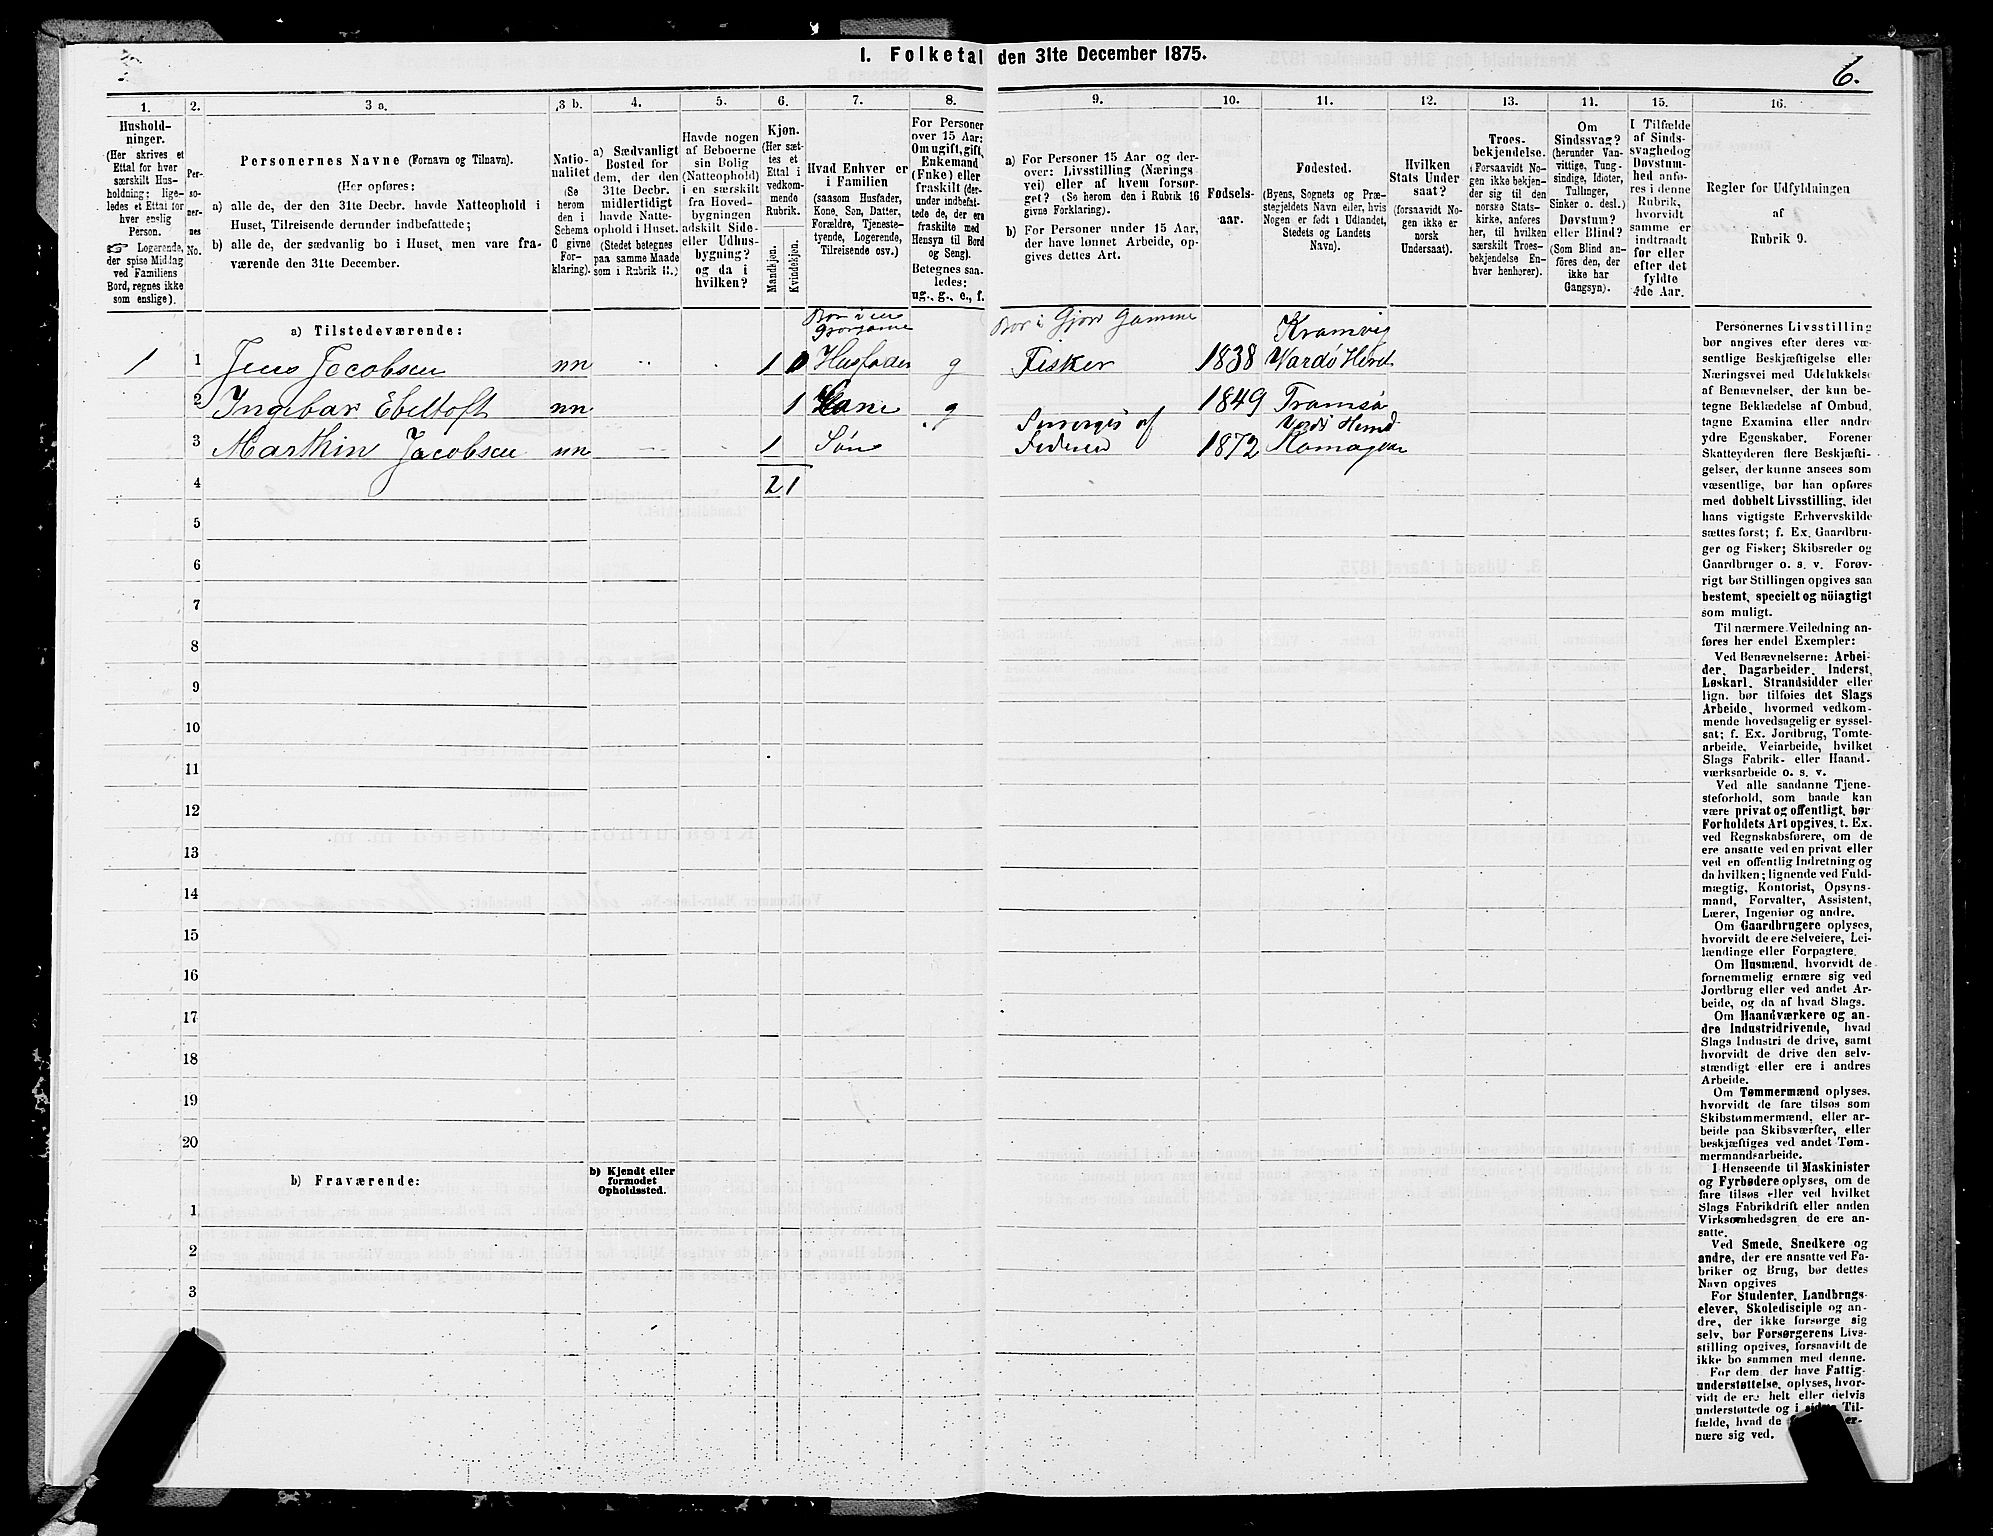 I. Folketal den 31te December 1875.
6.
1.
Husholdninger.
(Her skrives et
Ettal for hver
særskilt Husholdning;
ligeledes
et Ettal for
hver enslig
Person.
☞ Logerende,
der spise Middag
ved Familiens
Bord, regnes ikke
som enslige).
2.
Personernes
No.
3 a.
Personernes Navne (Fornavn og Tilnavn).
(Her opføres:
a) alle de, der den 31te Decbr. havde Natteophold i
Huset, Tilreisende derunder indbefattede;
b) alle de, der sædvanlig bo i Huset, men vare fraværende
den 31te December.
3 b.
Nationalitet
(Se
herom
den i
Schema
C givne
Forklaring).
4.
a) Sædvanligt
Bosted for
dem, der den
31te Decbr.
midlertidigt
havde Natteophold
i Huset.
(Stedet betegnes
paa samme Maade
som i Rubrik 11.)
5.
Havde nogen
af Beboerne
sin Bolig
(Natteophold)
i en særskilt
fra Hovedbygningen
adskilt Side-
eller Udhusbygning?
og da i
hvilken?
6.
Kjøn.
(Her sættes
et
Ettal i
vedkommende
Rubrik.
Mandkjøn.
Kvindekjøn.
7.
Hvad Enhver er
i Familien
(saasom Husfader,
Kone, Søn, Datter,
Forældre, Tjenestetyende,
Logerende,
Tilreisende osv.)
8.
For Personer
over 15 Aar:
Om ugift, gift,
Enkemand
(Enke) eller
fraskilt (derunder
indbefattede
de, der ere
fraskilte med
Hensyn til Bord
og Seng).
Betegnes saaledes:
ug., g., e., f.
9.
a) For Personer 15 Aar og derover:
Livsstilling (Næringsvei)
eller af hvem forsørget?
(Se herom den i Rubrik 16
givne Forklaring).
b) For Personer under 15 Aar,
der have lønnet Arbeide, opgives
dettes Art.
10.
Fødselsaar.
11.
Fødested.
(Byens, Sognets og Præstegjeldets
Navn eller, hvis
Nogen er født i Udlandet,
Stedets og Landets
Navn).
12.
Hvilken
Stats Undersaat?
(forsaavidt Nogen
ikke er
norsk
Undersaat).
13.
Troesbekjendelse.
(Forsaavidt Nogen
ikke bekjender
sig til den
norske Statskirke,
anføres
her, til hvilken
særskilt Troesbekjendelse
Enhver
henhører).
14.
Om
Sindssvag?
(herunder Vanvittige,
Tungsindige,
Idioter,
Tullinger,
Sinker o. desl.)
Døvstum?
eller Blind?
(Som Blind anføres
den, der
ikke har
Gangsyn).
15.
I Tilfælde
af Sindssvaghed
og
Døvstumhed
anføres
i denne
Rubrik,
hvorvidt
samme er
indtraadt
før eller
efter det
fyldte
4de Aar.
16.
Regler for Udfyldningen
af
Rubrik 9.
a) Tilstedeværende:
Bor i Gjor Gamme
1 1 Jens Jacobsen nn 1 Husfader g Fisker 1838 Kramvig Vardø Herd
2 Ingebar Ebeltoft nn 1 Kone g 1849 Tromsø
3 Marthin Jacobsen nn 1 Søn Forsørges af Faderen 1872 Vardø Herred Komagvær
4 2 1
5
6
7
8
9
10
11
12
13
14
15
16
17
18
19
20
b) Fraværende:
b) Kjendt eller
formodet
Opholdssted.
1
2
3
Personernes Livsstilling
bør angives efter deres væsentlige
Beskjæftigelse eller
Næringsvei med Udelukkelse
af Benævnelser, der kun betegne
Beklædelse af Ombud,
tagne Examina eller andre
ydre Egenskaber. Forener
Skatteyderen flere Beskjæftigelser,
der kunne ansees som
væsentlige, bør han opføres
med dobbelt Livsstilling, idet
hans vigtigste Erhvervskilde
sættes først; f. Ex. Gaardbruger
og Fisker; Skibsreder og
Gaardbruger o. s. v. Forøvrigt
bør Stillingen opgives saa
bestemt, specielt og nöiagtigt
som muligt.
Til nærmere Veiledning anføres
her endel Exempler:
Ved Benævnelserne: Arbeider,
Dagarbeider, Inderst,
Løskarl, Strandsidder eller
lign. bør tilføies det Slags
Arbeide, hvormed vedkommende
hovedsagelig er sysselsat;
f. Ex. Jordbrug, Tomtearbeide,
Veiarbeide, hvilket
Slags Fabrik- eller Haandværksarbeide
o. s. v.
Ved alle saadanne Tjenesteforhold,
som baade kan
være privat og offentligt, bør
Forholdets Art opgives, t. Ex.
ved Regnskabsførere, om de
ere ansatte ved en privat eller
ved en offentlig Indretning og
da hvilken; lignende ved Fuldmægtig,
Kontorist, Opsynsmand,
Forvalter, Assistent,
Lærer, Ingeniør og andre.
Om Gaardbrugere oplyses,
hvorvidt de ere Selveiere, Leilændinge
eller Forpagtere.
Om Husmænd, hvorvidt de
fornemmelig ernære sig ved
Jordbrug eller ved andet Arbeide,
og da af hvad Slags.
Om Haandværkere og andre
Industridrivende, hvad
Slags Industri de drive, samt
hvorvidt de drive den selvstændigt
eller ere i andres
Arbeide.
Om Tømmermænd oplyses,
hvorvidt de fare tilsøs som
Skibstømmermænd, eller arbeide
paa Skibsværfter, eller
beskjæftiges ved andet Tømmermandsarbeide.
I Henseende til Maskinister
og Fyrbødere oplyses, om de
fare tilsøs eller ved hvilket
Slags Fabrikdrift eller anden
Virksomhedsgren de ere ansatte.
Ved Smede, Snedkere og
andre, der ere ansatte ved Fabriker
og Brug, bør dettes
Navn opgives
For Studenter, Landbrugselever,
Skoledisciple og andre,
der ikke forsørge sig
selv, bør Forsørgerens Livsstilling
opgives, forsaavidt de
ikke bo sammen med denne.
For dem, der have Fattigunderstøttelse,
oplyses, hvorvidt
de ere helt eller delvis
understøttede og i sidste Tilfælde,
hvad de
nære sig ved.